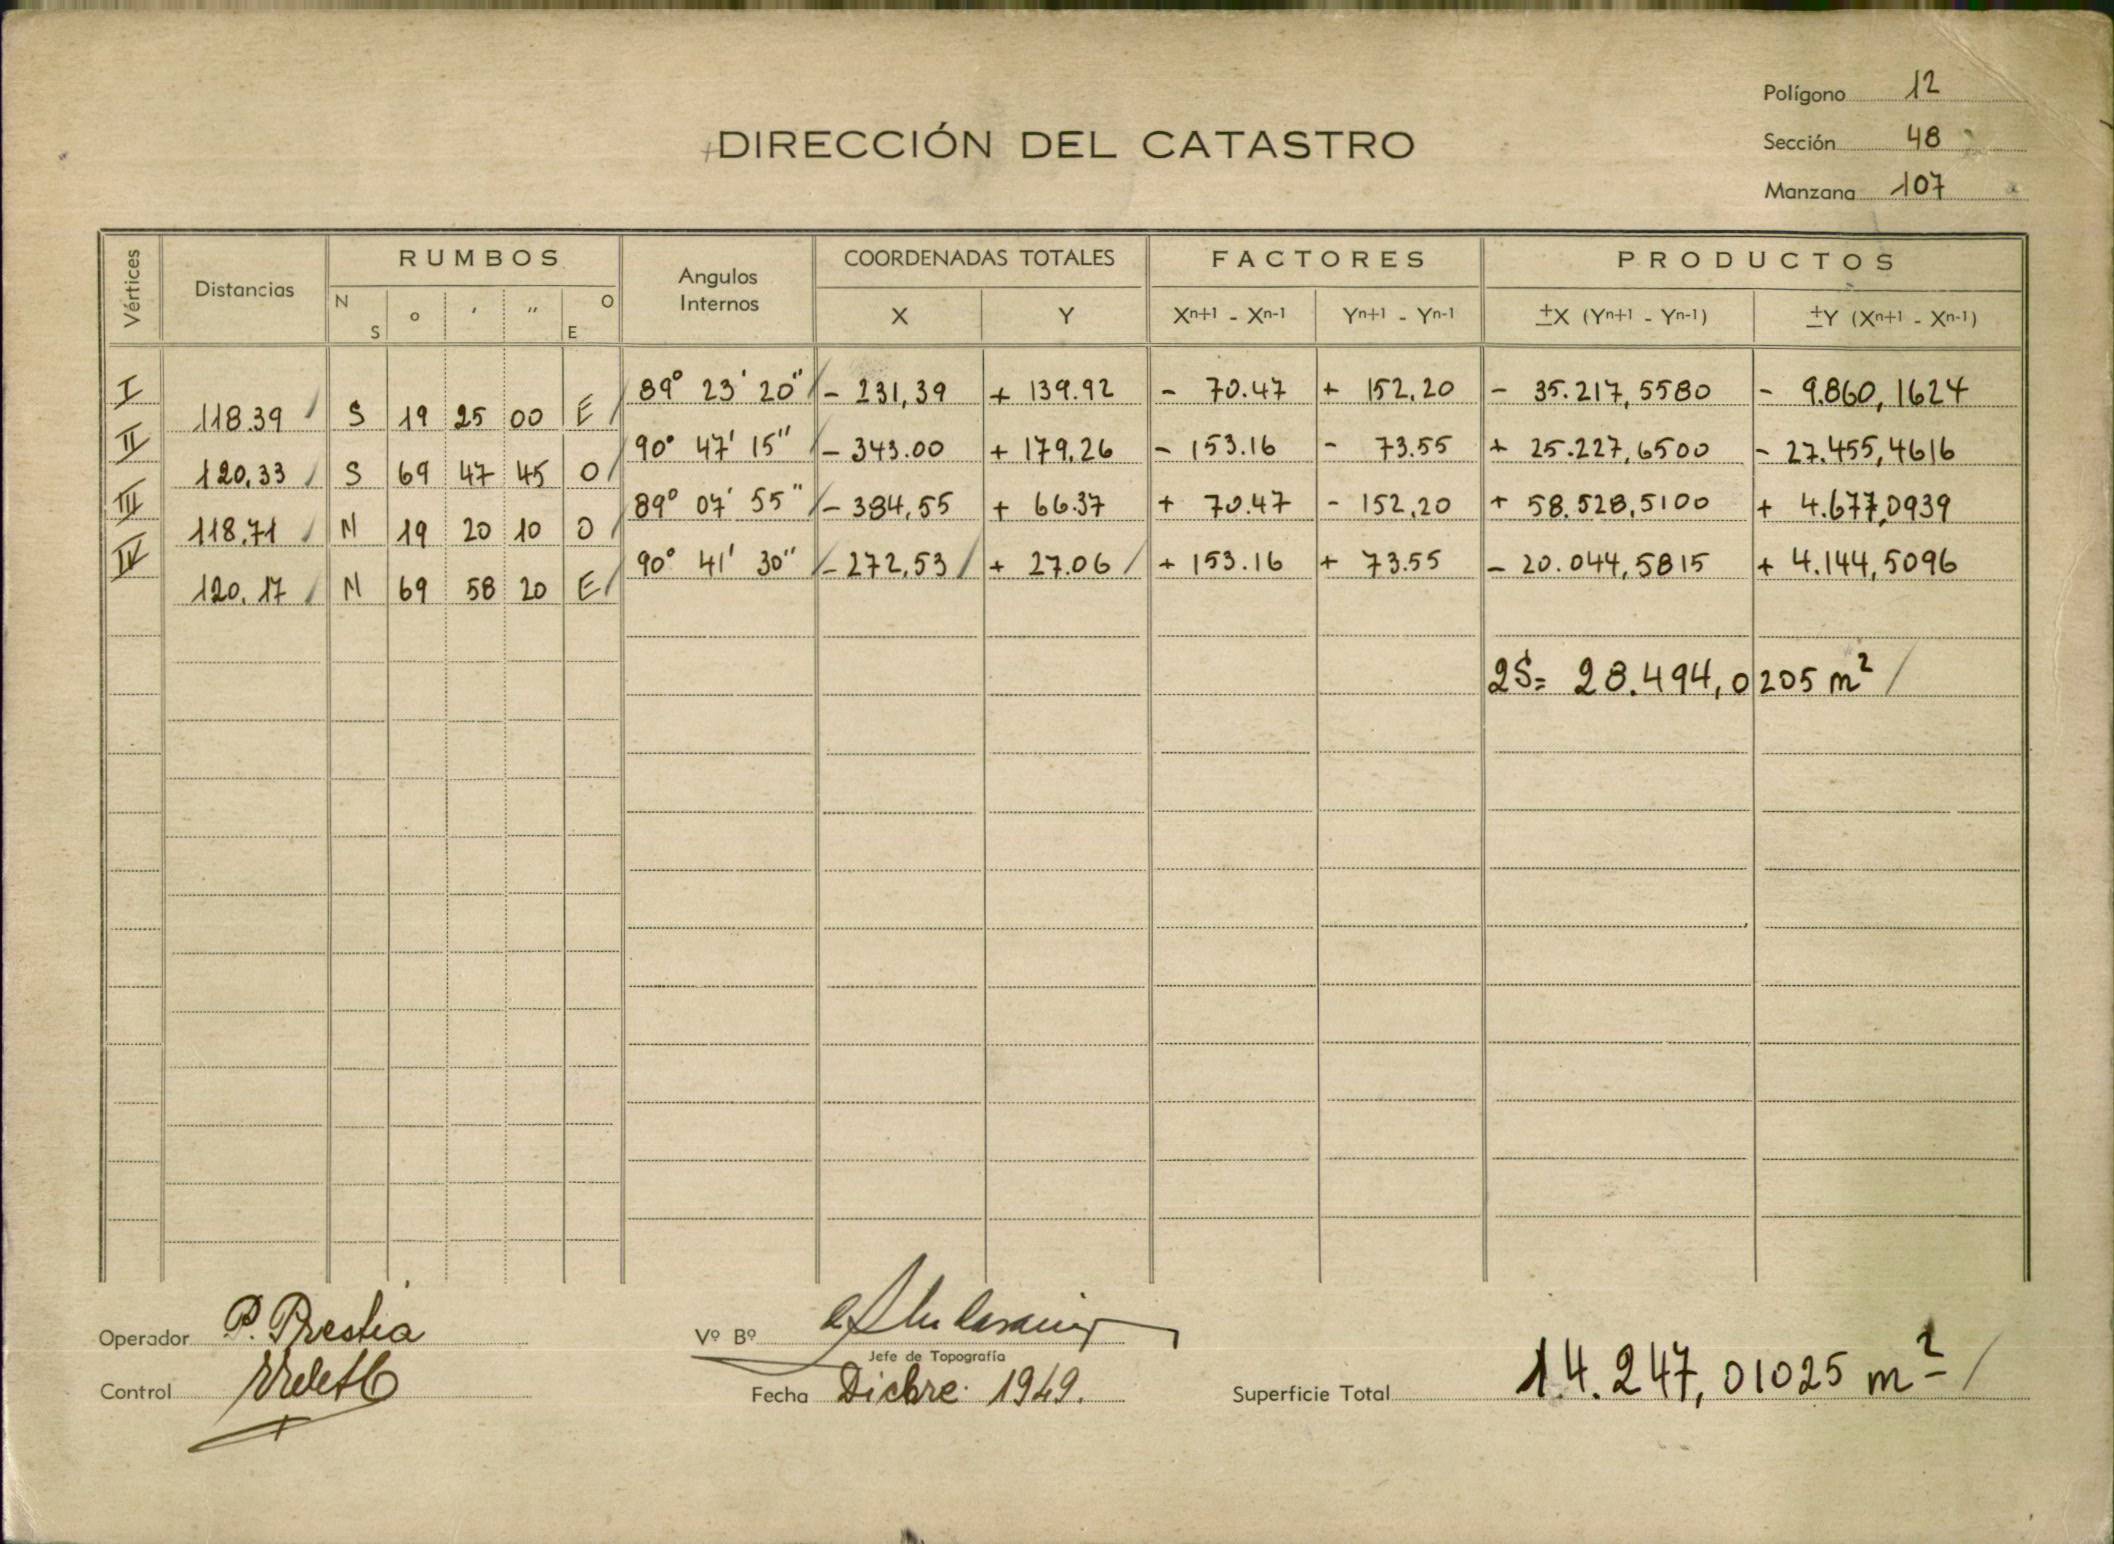 Polígono 12
DIRECCIÓN DEL CATASTRO
Sección 48
Manzana 107
Vértices Distancias RUMBOS Angulos Internos COORDENADAS TOTALES FACTORES PRODUCTOS
N S ° ′ ″ O E X Y Xn+1 - Xn-1 Yn+1 - Yn-1 ±X (Yn+1 - Yn-1) ±Y (Xn+1 - Xn-1)
I 89° 23' 20" - 231,39 + 139.92 - 70.47 + 152,20 - 35.217,5580 - 9.860,1624
118.39 S 19 25 00 E
II 90° 47' 15" - 343.00 + 179,26 - 153.16 - 73.55 + 25.227,6500 - 27.455,4616
120,33 S 69 47 45 O
III 89° 07' 55" - 384,55 + 66.37 + 70.47 - 152,20 + 58.528,5100 + 4.677,0939
118,71 N 19 20 10 O
IV 90° 41' 30" - 272,53 + 27.06 + 153.16 + 73.55 - 20.044,5815 + 4.144,5096
120,17 N 69 58 20 E
2S= 28.494,0205 m²
Operador P. Prestia
Vº Bº
Jefe de Topografía
Control
Fecha Dicbre. 1949.
Superficie Total 14.247,01025 m²